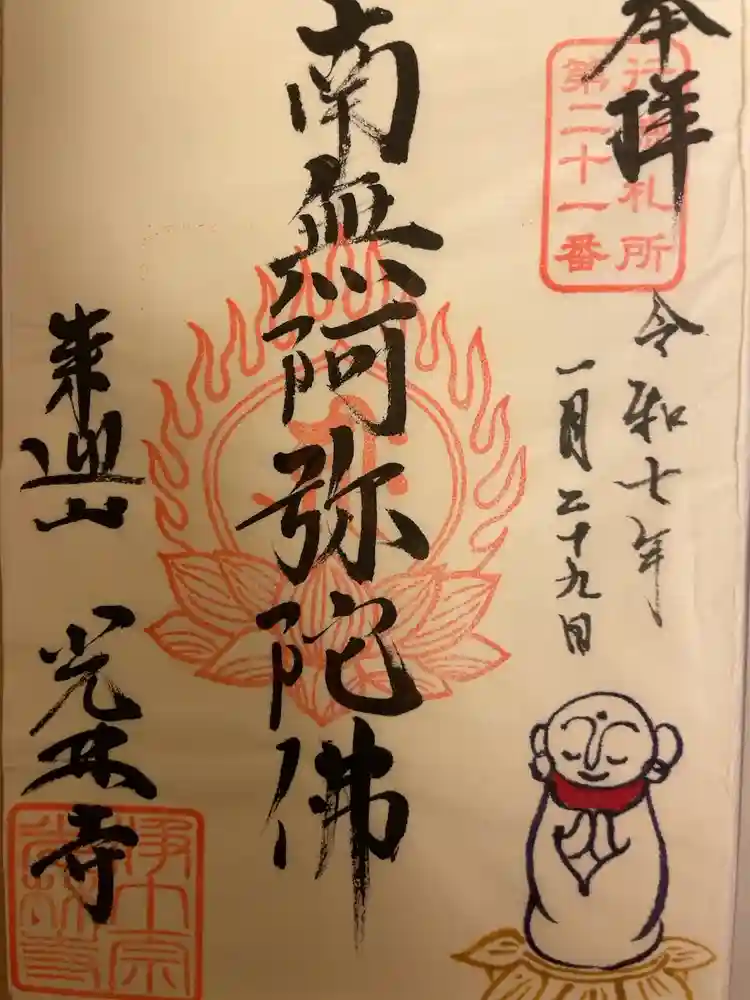 奉拝
行橋札所
第二十一番
令和七年
一月二十九日
南無阿弥陀佛
来迎山 光林寺
浄土宗
光林寺